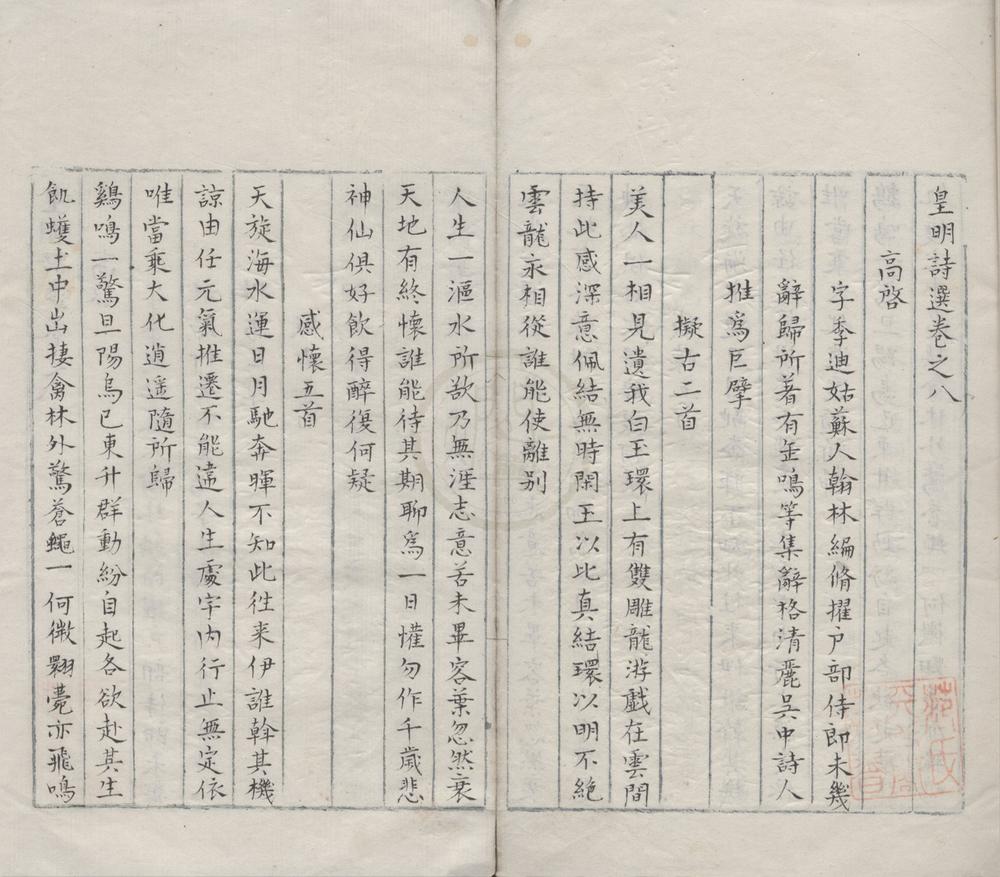 皇明詩選卷之八
高啓
字季迪姑蘇人翰林編脩擢户部侍郎未幾
辭歸所著有缶鳴等集辭格清麗吳中詩人
推爲巨擘
擬古二首
美人一相見遺我白玉環上有雙雕龍游戲在雲間
持此感深意佩結無時閑玉以比真結環以明不絕
雲龍永相從誰能使離別
人生一漚水所欲乃無涯志意苦未畢容華忽然衰
天地有終懷誰能待其期聊爲一日懽勿作千歲悲
神仙俱好飲得醉復何疑
感懷五首
天旋海水運日月馳奔暉不知此徃来伊誰斡其機
諒由任元氣推遷不能違人生處宇內行止無定依
唯當乘大化逍遥隨所歸
鷄鳴一驚旦陽烏已東升群動紛自起各欲赴其生
飢蠖土中出捿禽林外驚蒼蠅一何微翾薨亦飛鳴